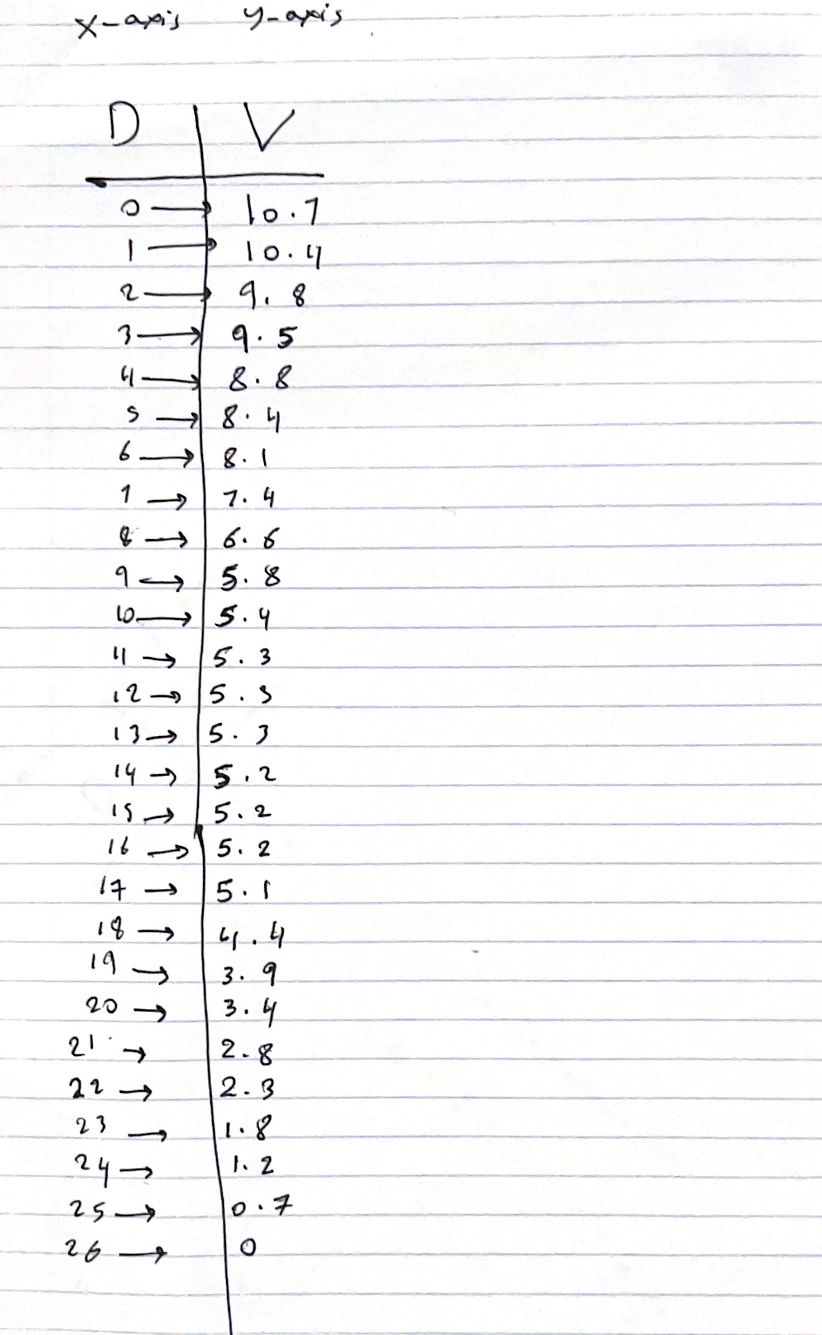 x-axis y-axis
D V
0 → 10.7
1 → 10.4
2 → 9.8
3 → 9.5
4 → 8.8
5 → 8.4
6 → 8.1
7 → 7.4
8 → 6.6
9 → 5.8
10 → 5.4
11 → 5.3
12 → 5.3
13 → 5.3
14 → 5.2
15 → 5.2
16 → 5.2
17 → 5.1
18 → 4.4
19 → 3.9
20 → 3.4
21 → 2.8
22 → 2.3
23 → 1.8
24 → 1.2
25 → 0.7
26 → 0